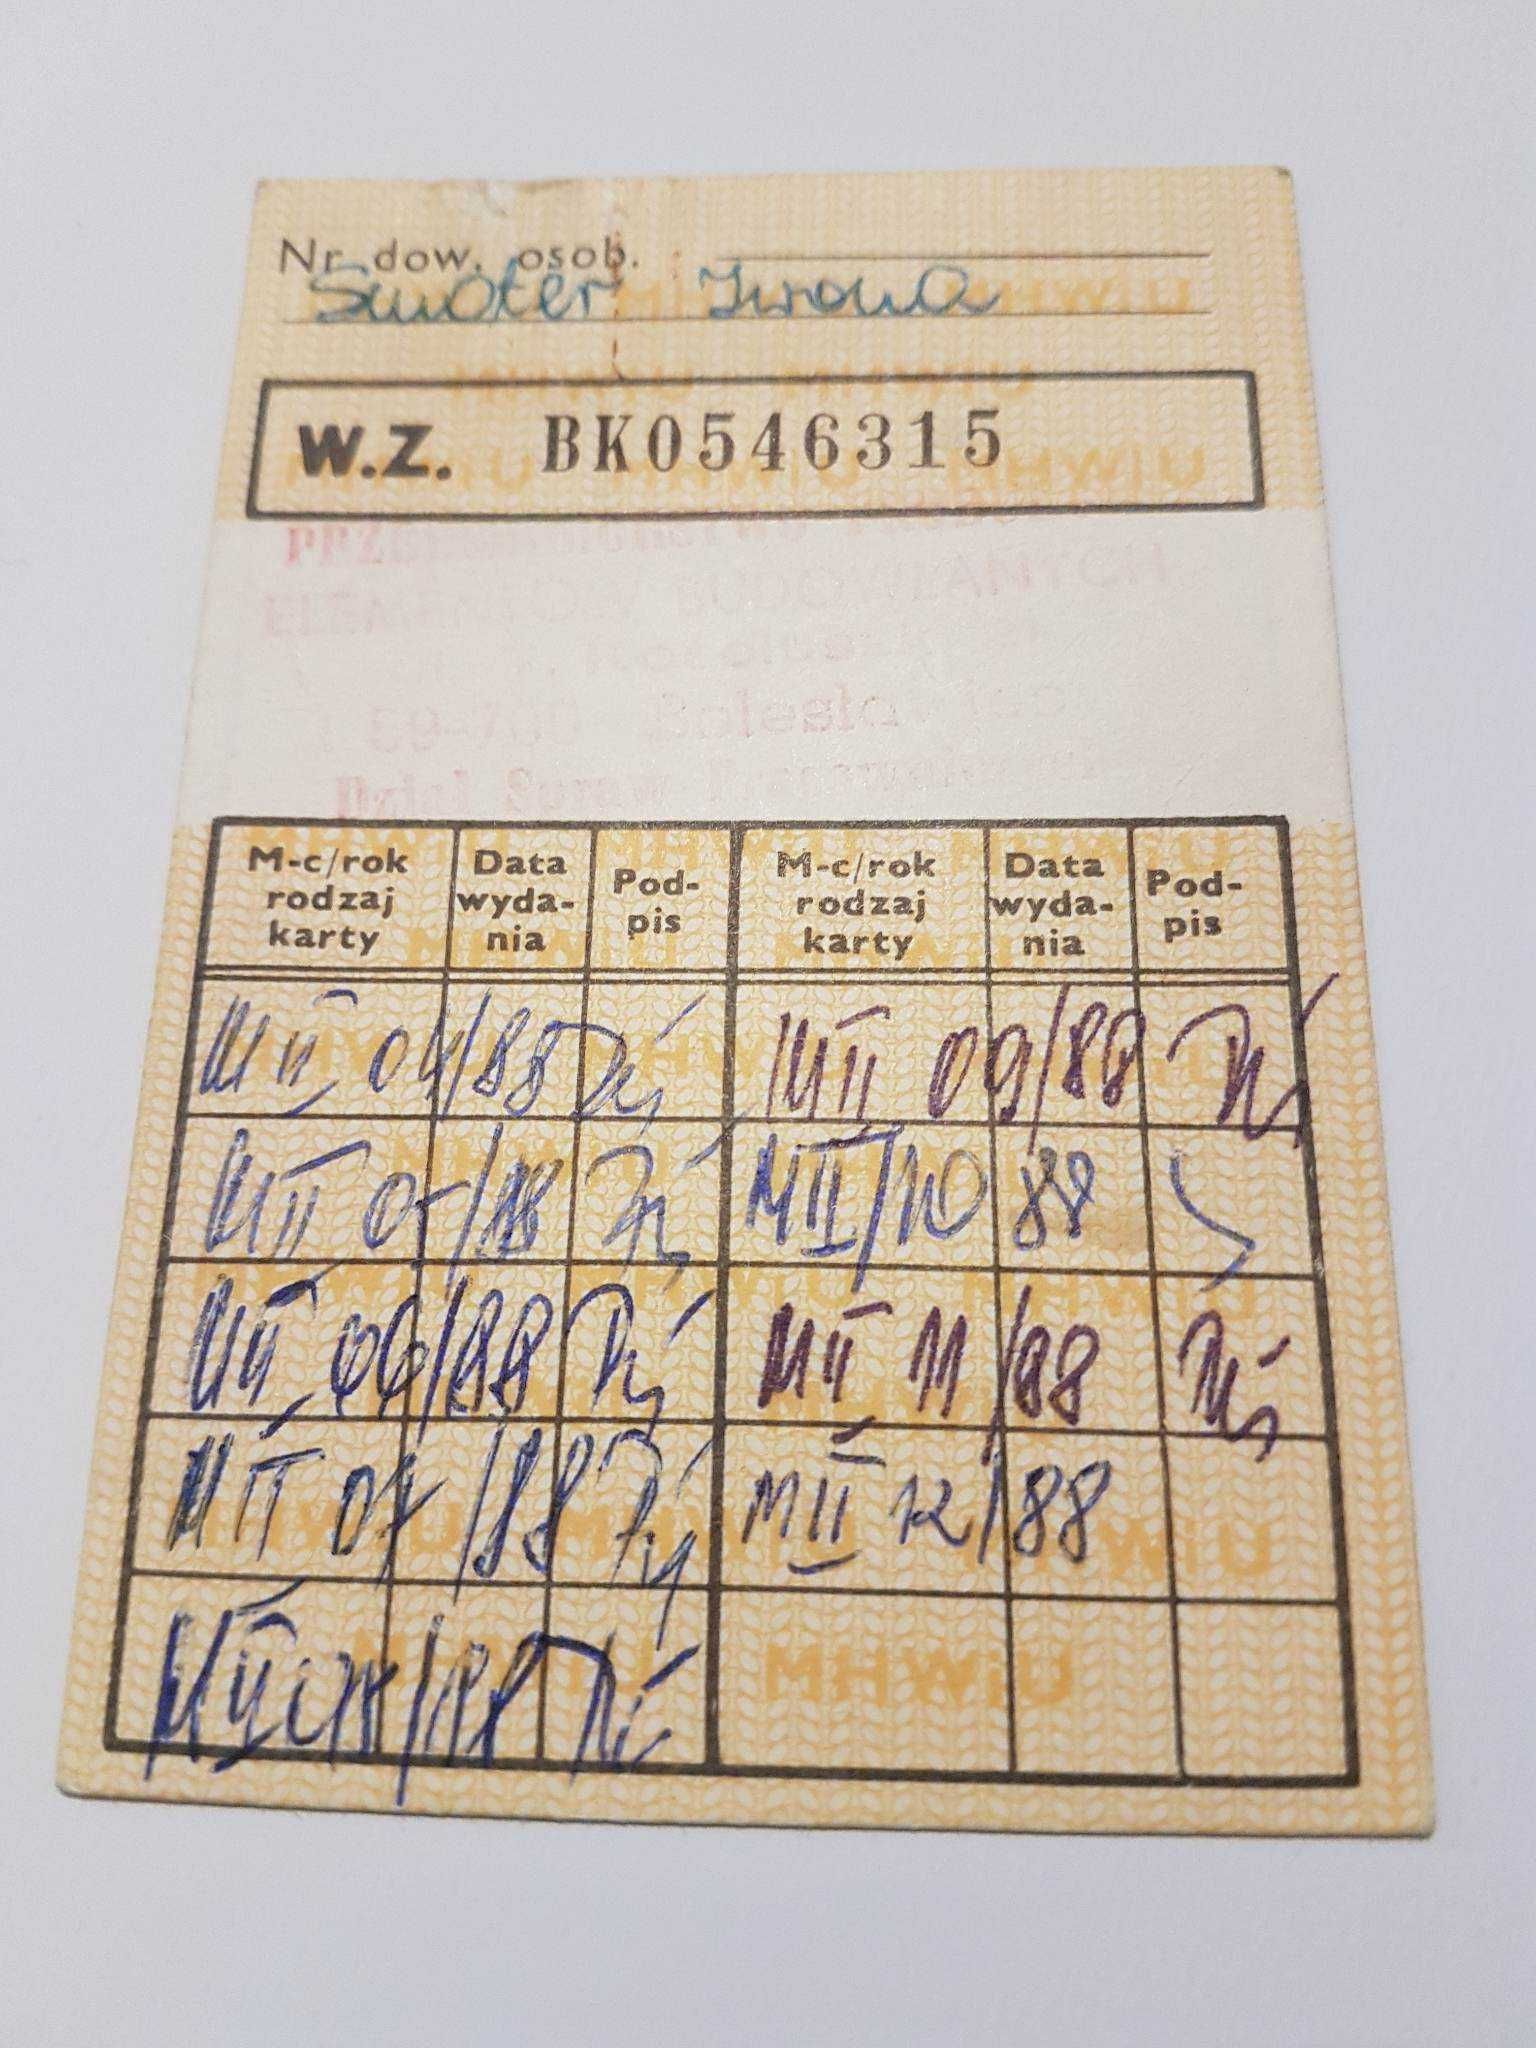 Nr dow. osob.
Smoter Iwona
W.Z. BK0546315
ELEMENTÓW BUDOWLANYCH
59-700
Dział
M-c/rok rodzaj karty Data wyda-nia Pod-pis M-c/rok rodzaj karty Data wyda-nia Pod-pis
M II 04/88 M II 09/88
M II 05/88 M II/10 88
M II 06/88 M II 11/88
M II 07/88 M II 12/88
M II 08/88
MHWiU